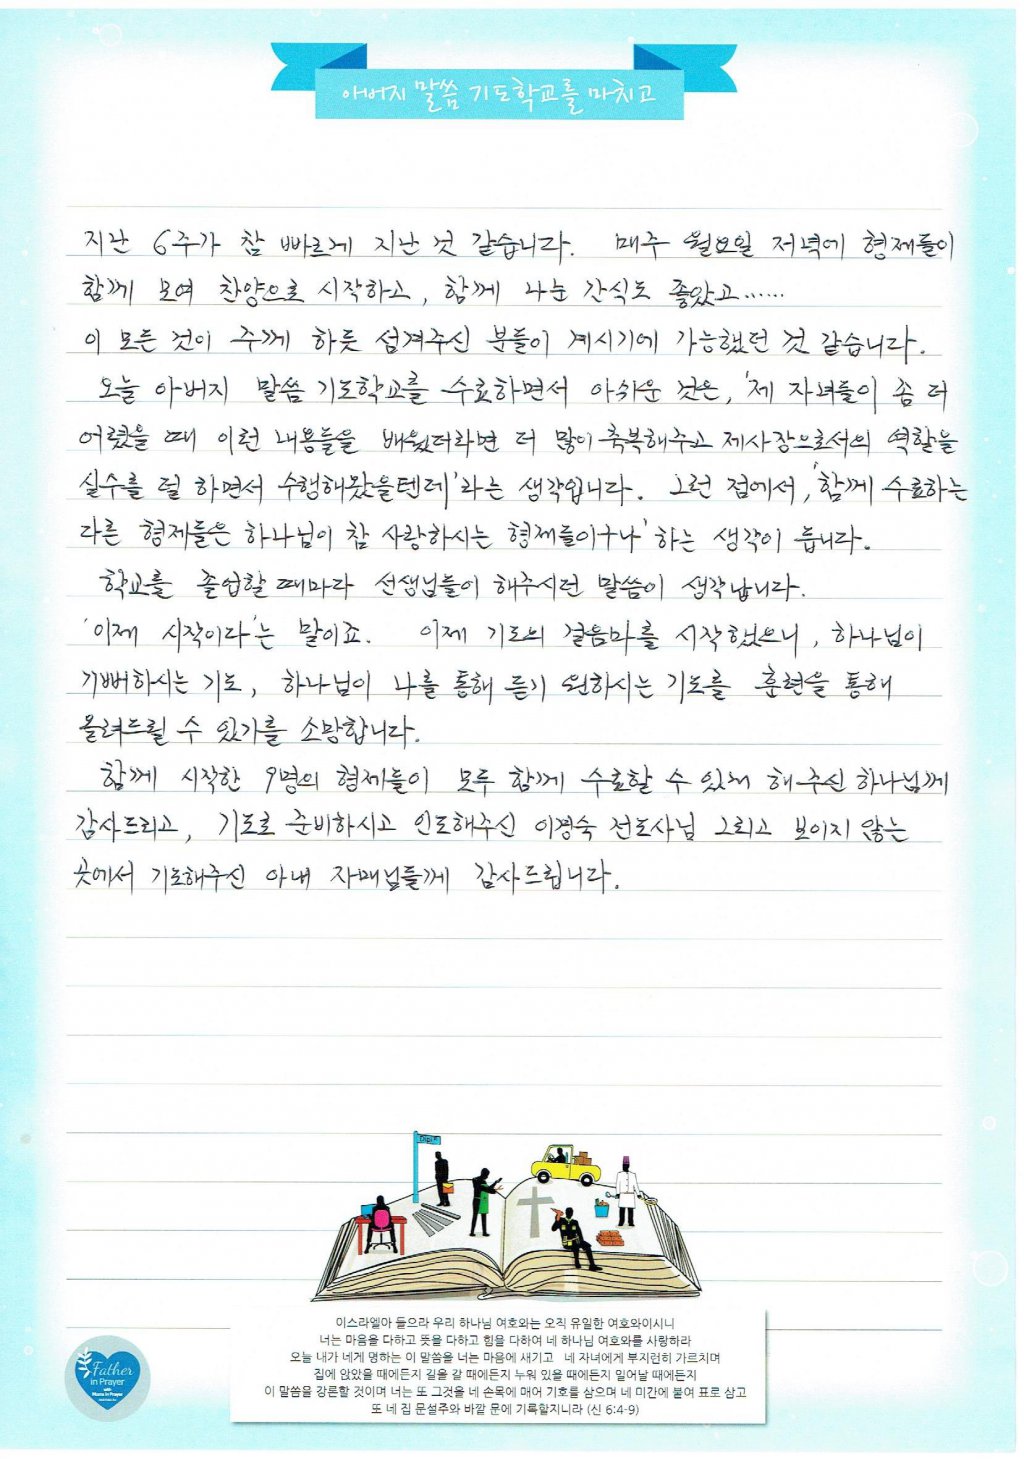 아버지 말씀 기도학교를 마치고
지난 6주가 참 빠르게 지난 것 같습니다. 매주 월요일 저녁에 형제들이
함께 모여 찬양으로 시작하고, 함께 나눈 간식도 좋았고……
이 모든 것이 주께 하듯 섬겨주신 분들이 계시기에 가능했던 것 같습니다.
오늘 아버지 말씀 기도학교를 수료하면서 아쉬운 것은, '제 자녀들이 좀 더
어렸을 때 이런 내용들을 배웠더라면 더 많이 축복해주고 제사장으로서의 역할을
실수를 덜 하면서 수행해왔을텐데'라는 생각입니다. 그런 점에서, '함께 수료하는
다른 형제들은 하나님이 참 사랑하시는 형제들이구나' 하는 생각이 듭니다.
학교를 졸업할 때마다 선생님들이 해주시던 말씀이 생각납니다.
'이제 시작이다'는 말이죠. 이제 기도의 걸음마를 시작했으니, 하나님이
기뻐하시는 기도, 하나님이 나를 통해 듣기 원하시는 기도를 훈련을 통해
올려드릴 수 있기를 소망합니다.
함께 시작한 9명의 형제들이 모두 함께 수료할 수 있게 해주신 하나님께
감사드리고, 기도로 준비하시고 인도해주신 이경숙 전도사님 그리고 보이지 않는
곳에서 기도해주신 아내 자매님들께 감사드립니다.
이스라엘아 들으라 우리 하나님 여호와는 오직 유일한 여호와이시니
너는 마음을 다하고 뜻을 다하고 힘을 다하여 네 하나님 여호와를 사랑하라
오늘 내가 네게 명하는 이 말씀을 너는 마음에 새기고 네 자녀에게 부지런히 가르치며
집에 앉았을 때에든지 길을 갈 때에든지 누워 있을 때에든지 일어날 때에든지
이 말씀을 강론할 것이며 너는 또 그것을 네 손목에 매어 기호를 삼으며 네 미간에 붙여 표로 삼고
또 네 집 문설주와 바깥 문에 기록할지니라 (신 6:4-9)
Father
in Prayer
with
Moms in Prayer